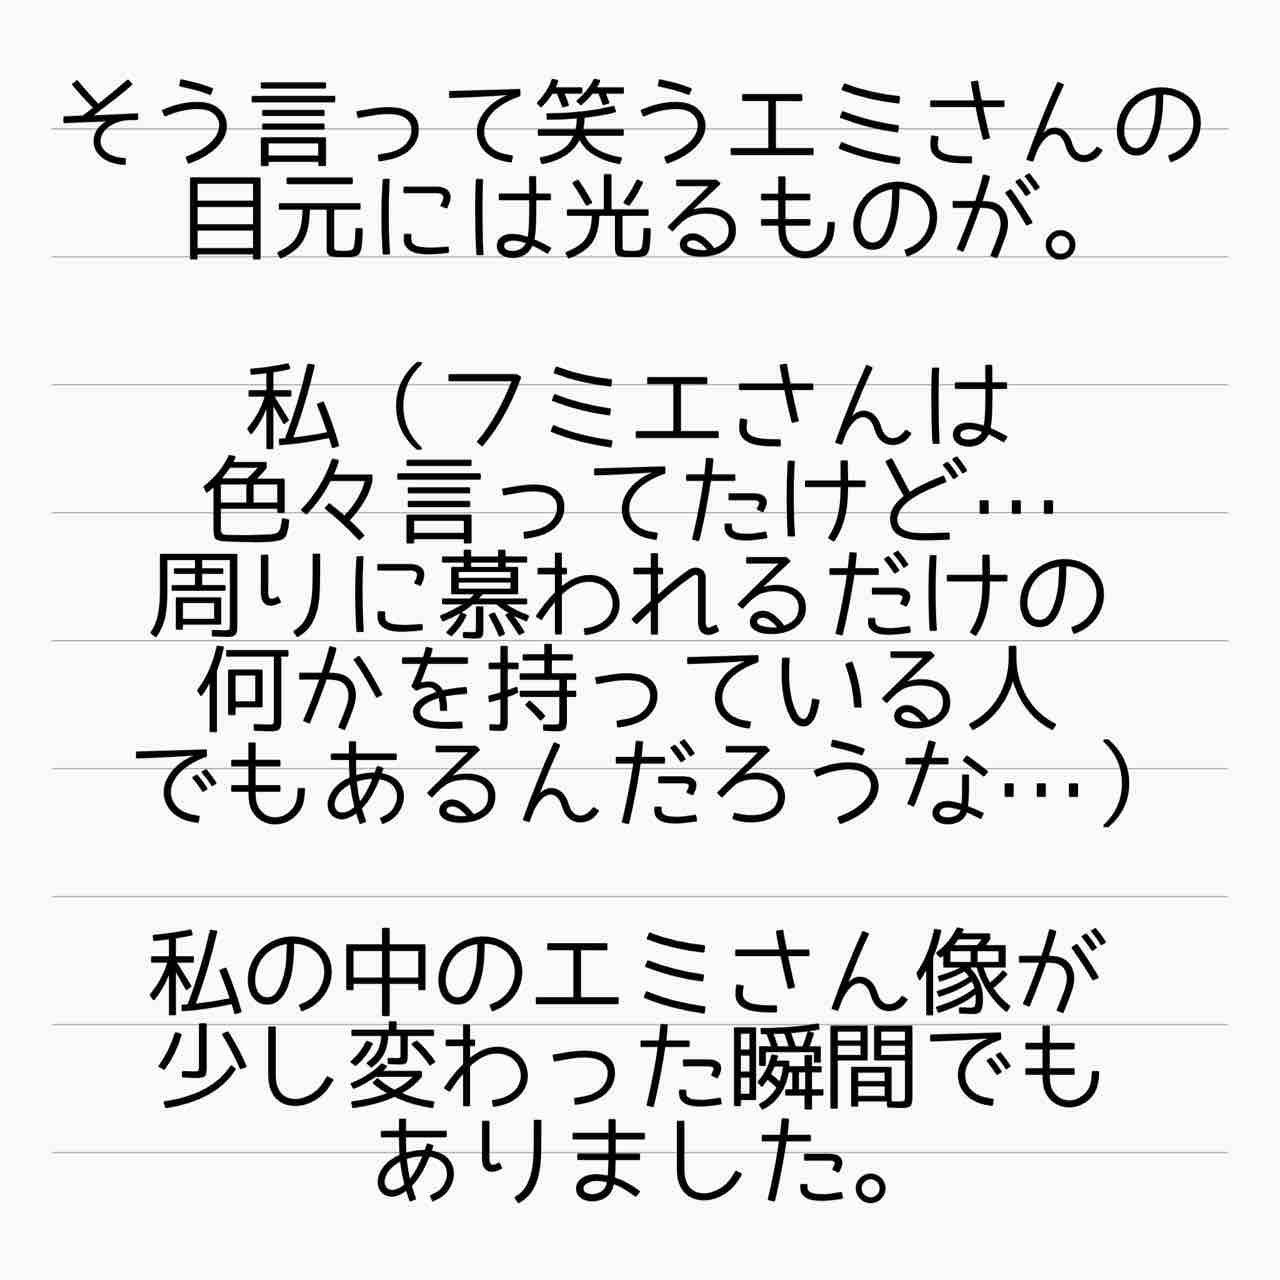 そう言って笑うエミさんの
目元には光るものが。
私（フミエさんは
色々言ってたけど…
周りに慕われるだけの
何かを持っている人
でもあるんだろうな…）
私の中のエミさん像が
少し変わった瞬間でも
ありました。